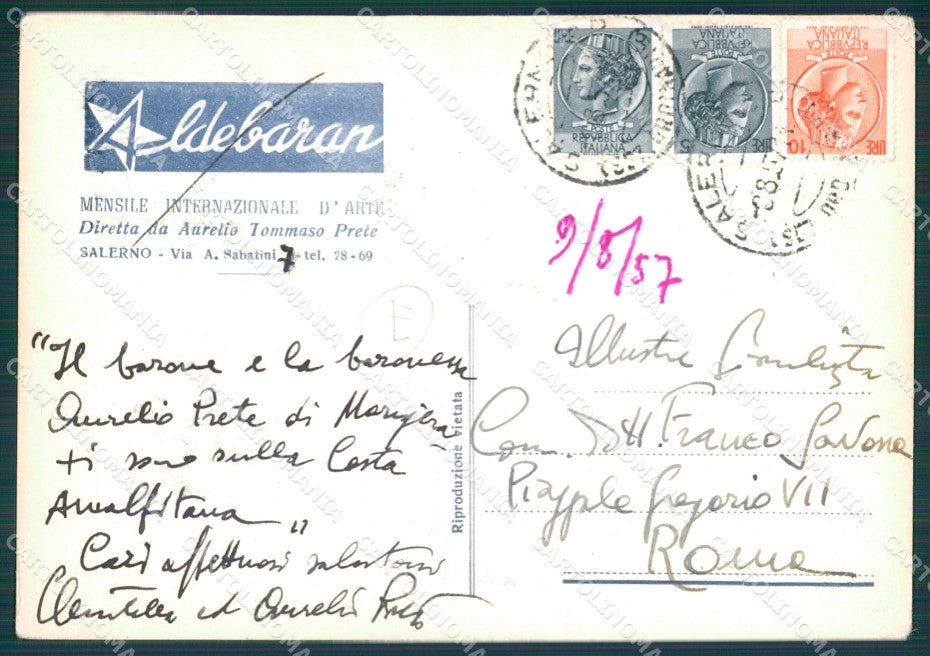 Aldebaran
MENSILE INTERNAZIONALE D'ARTE
Diretta da Aurelio Tommaso Prete
SALERNO - Via A. Sabatini 7 - tel. 28-69
REPUBBLICA
ITALIANA
POSTE
REPVBBLICA
ITALIANA
LIRE 5
POSTE
REPVBBLICA
ITALIANA
LIRE 10
SALERNO
9/8/57
7
"Il barone e la baronessa
Aurelio Prete di
ti sono sulla Costa
Amalfitana"
Cari affettuosi saluti
ed Aurelio Prete
Riproduzione vietata
Illustre
Comm. Dott. Franco Savona
Piazzale Gregorio VII
Roma
CARTOLINOMANIA